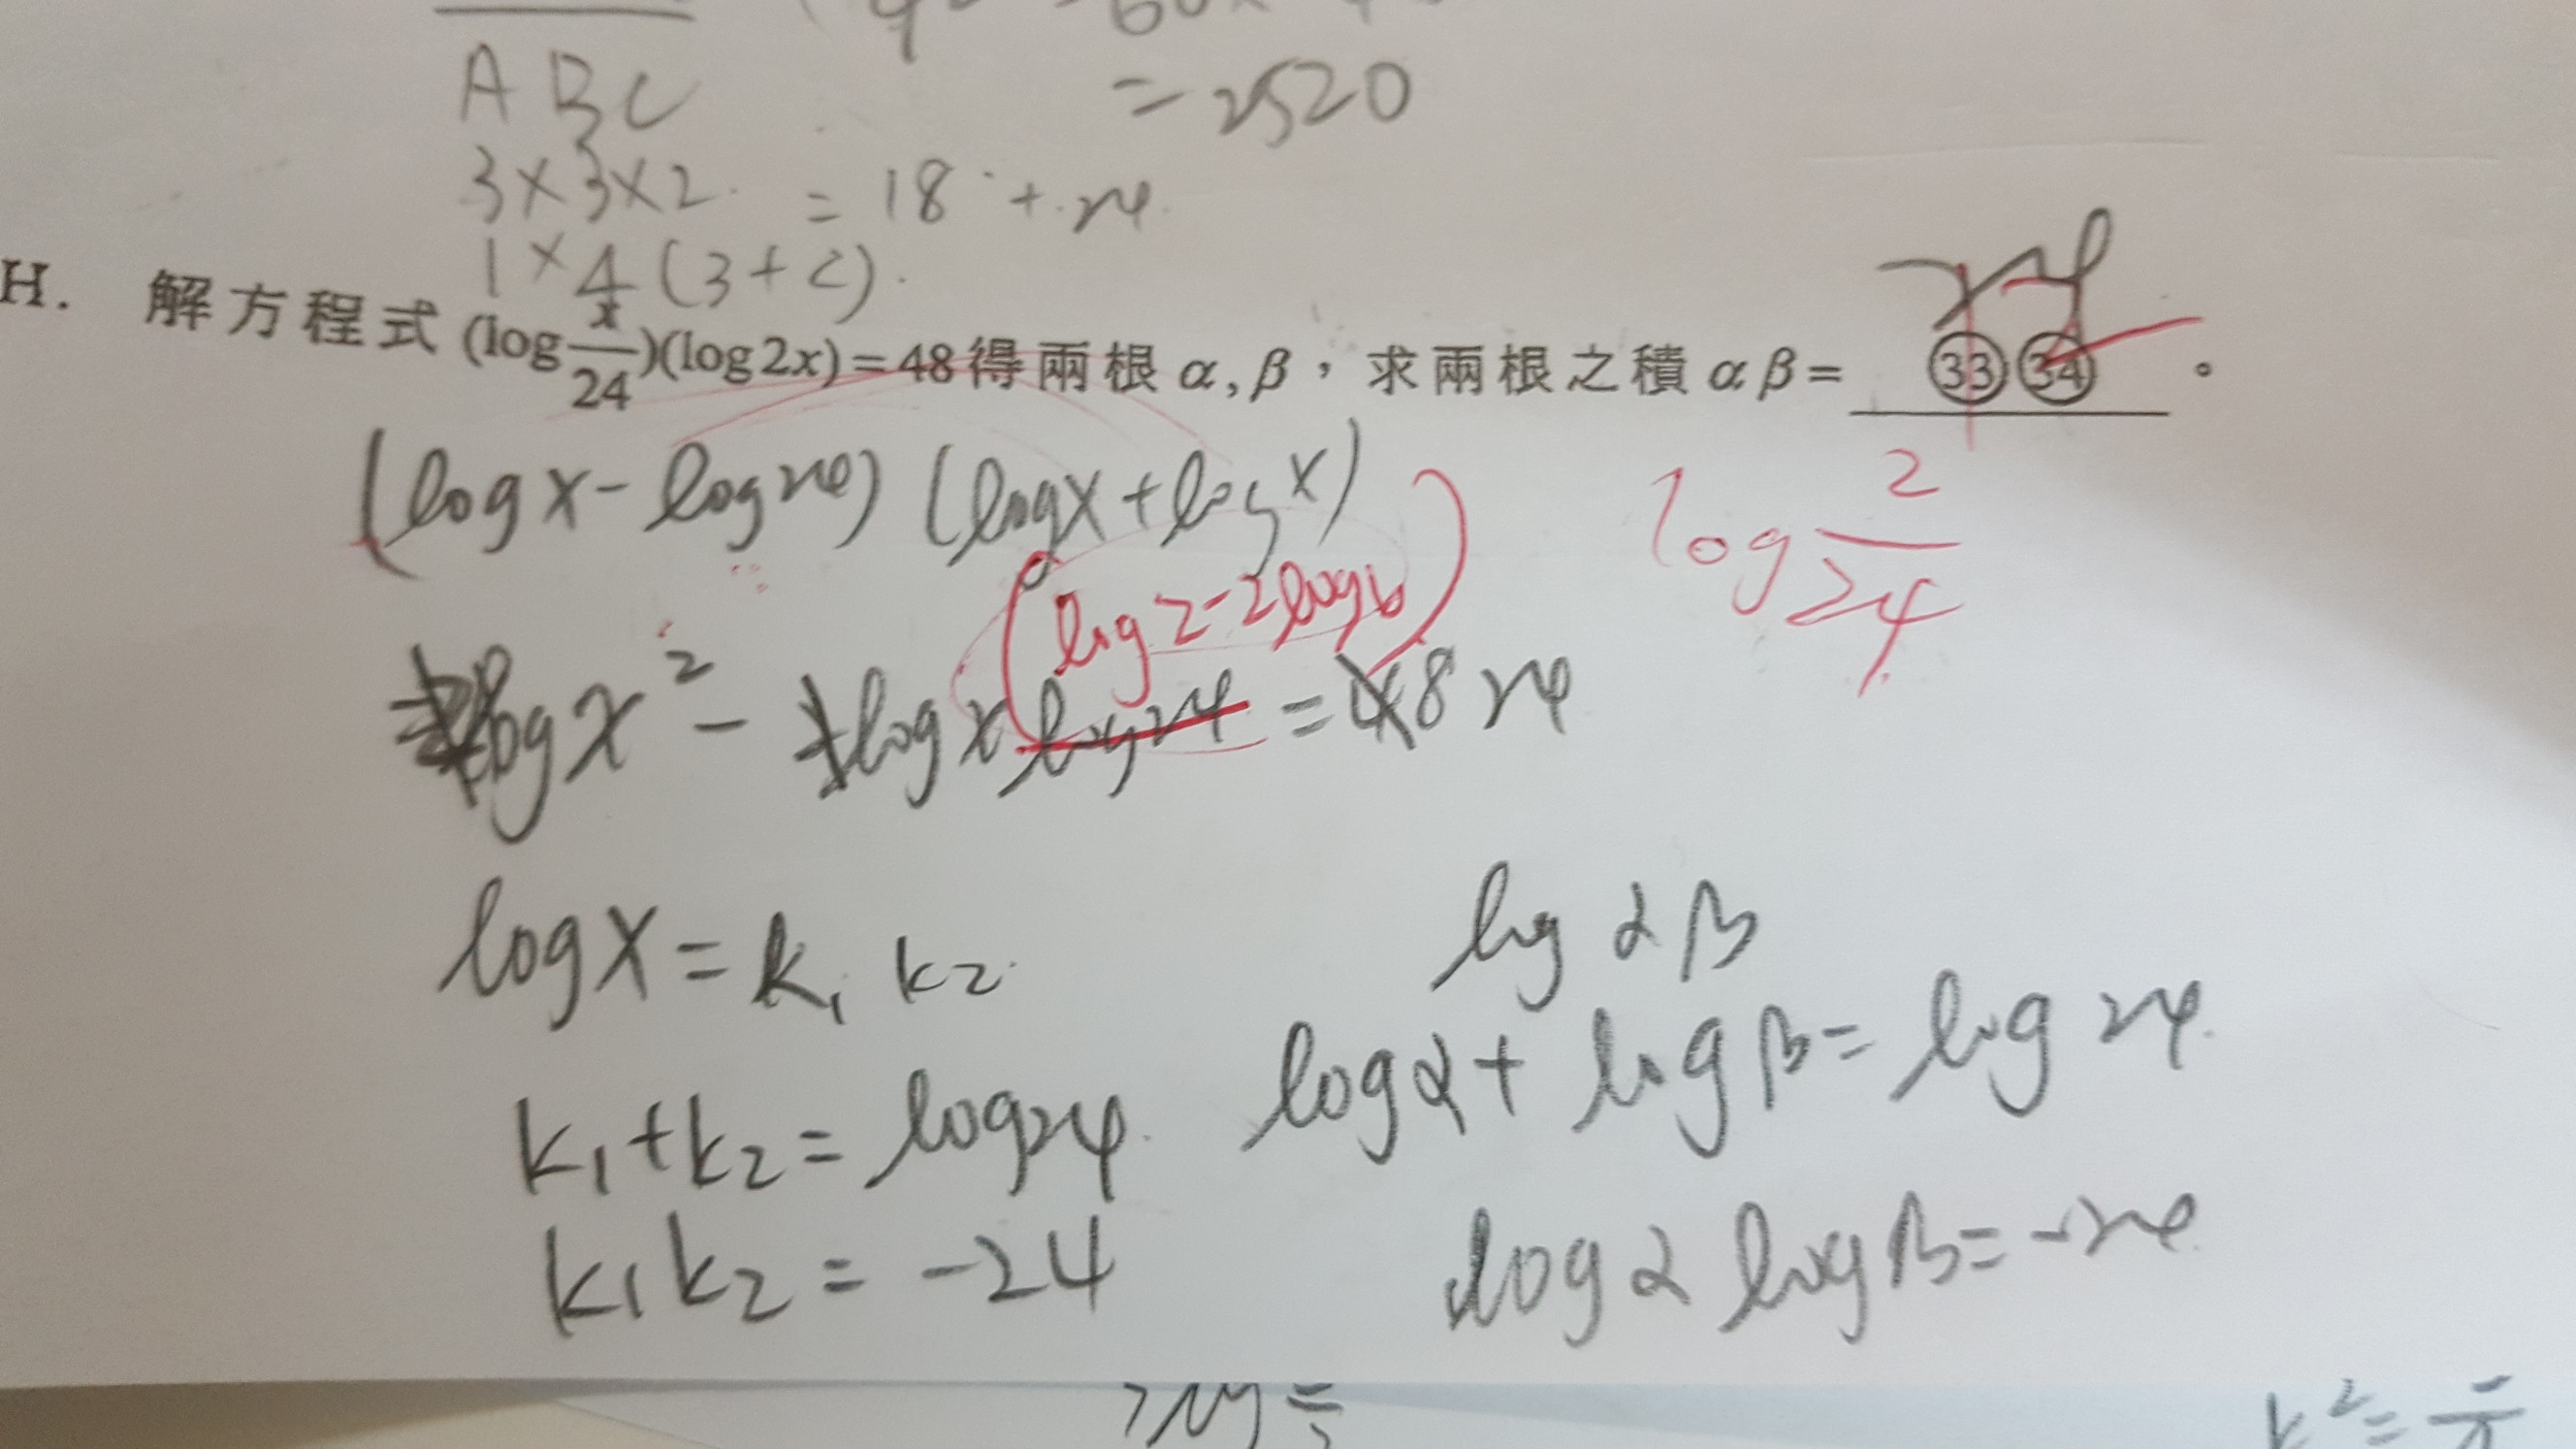 A B C
= 2520
3×3×2 = 18 + 24
1×4(3+2)
H. 解方程式 (log x/24)(log2x)=48得兩根 α,β，求兩根之積 αβ= ㉝㉞ 。
24
(log x - log 24) (log x + log x)
log 2/24
(log 2 - 2log6)
log x² - log x log 24 = 48 24
log x = k₁ k₂
log αβ
log α + log β = log 24
k₁+k₂ = log 24
k₁k₂ = -24
log α log β = -24
k² =